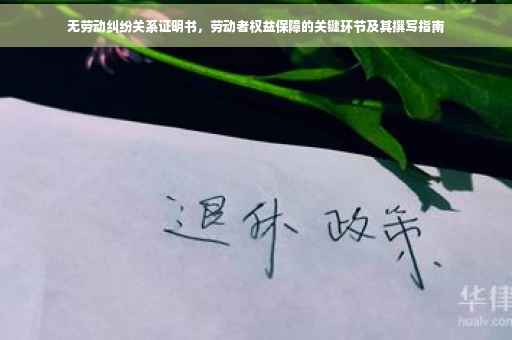 无劳动纠纷关系证明书，劳动者权益保障的关键环节及其撰写指南
退休 政策
华律
hualv.com